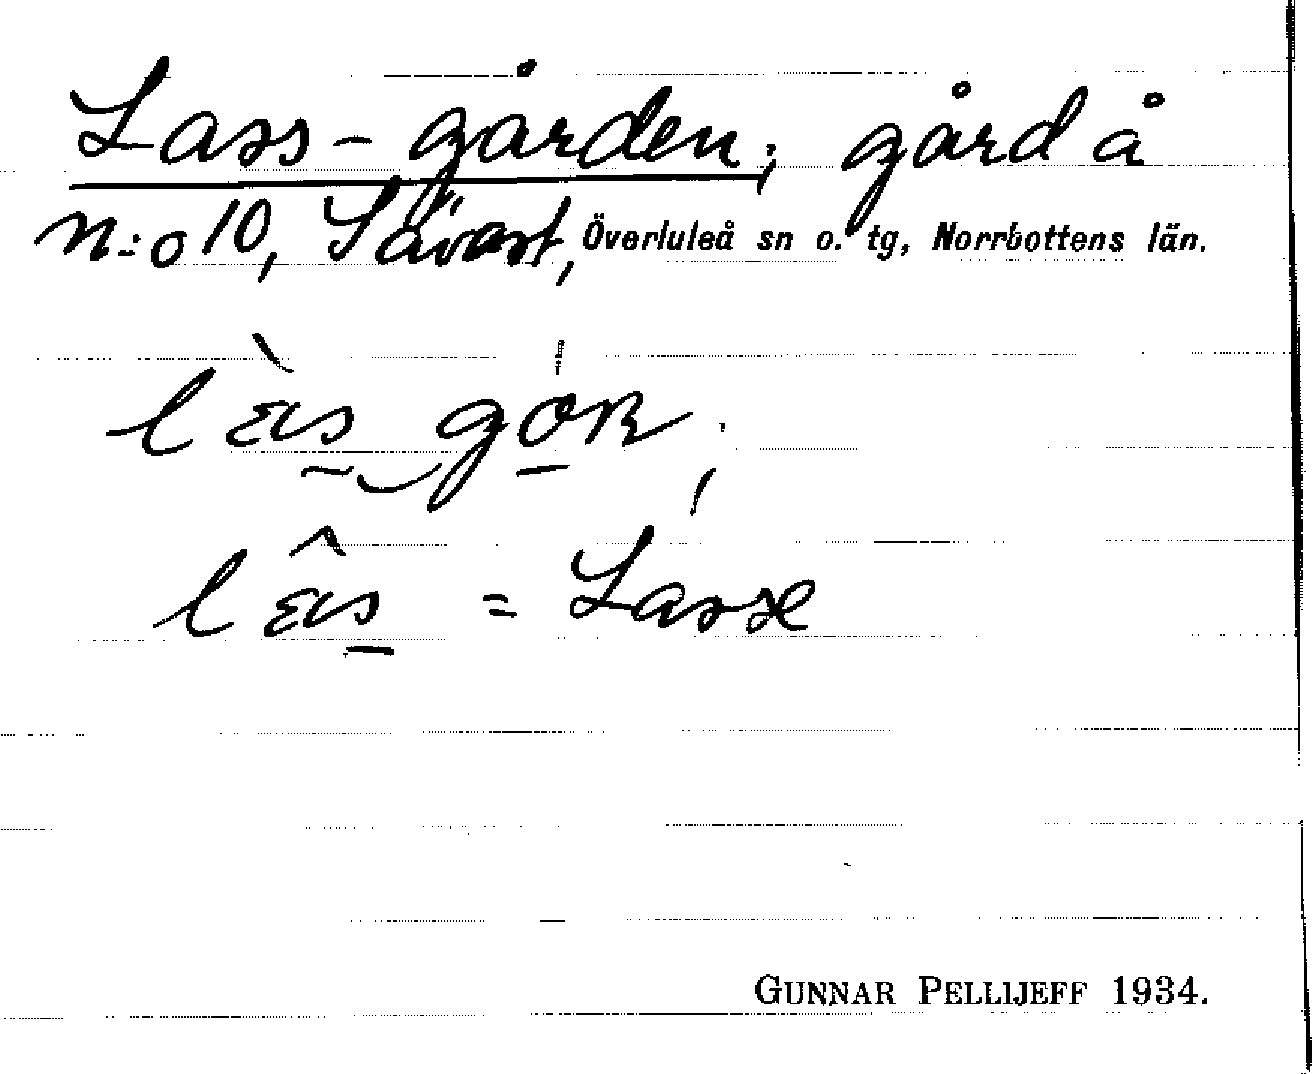 Lass-gården; gård å
n:o 10, Sävast, Överluleå sn o. tg, Norrbottens län.
= Lasse
GUNNAR PELLIJEFF 1934.